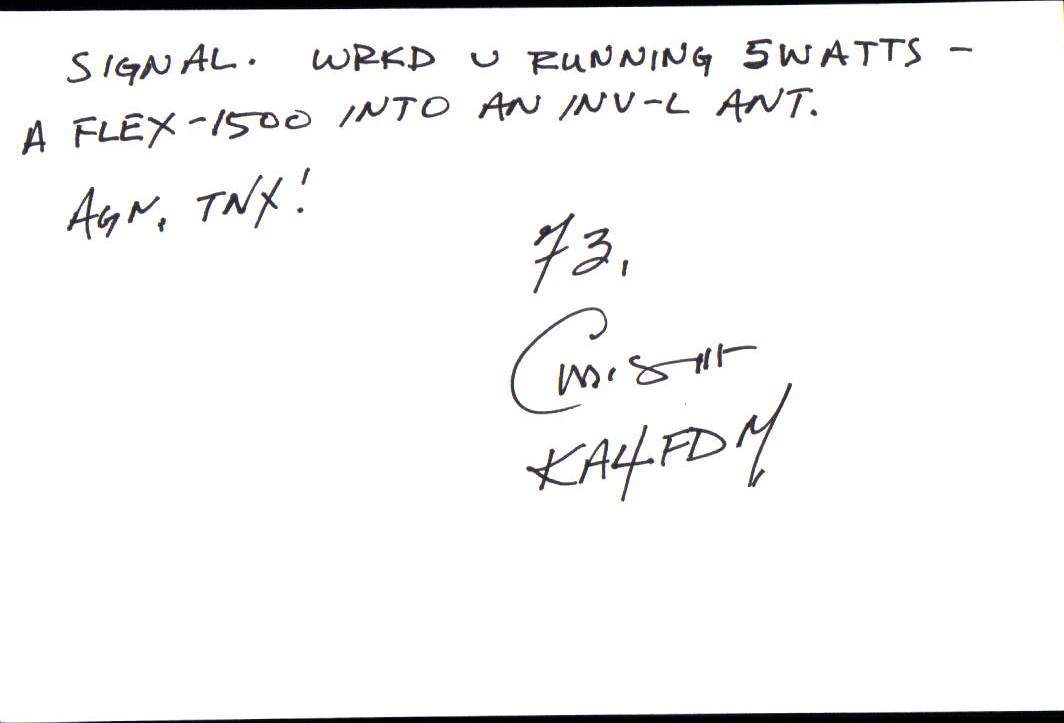 SIGNAL. WRKD U RUNNING 5WATTS -
A FLEX-1500 INTO AN INV-L ANT.
AGN, TNX!
73,
KA4FDM